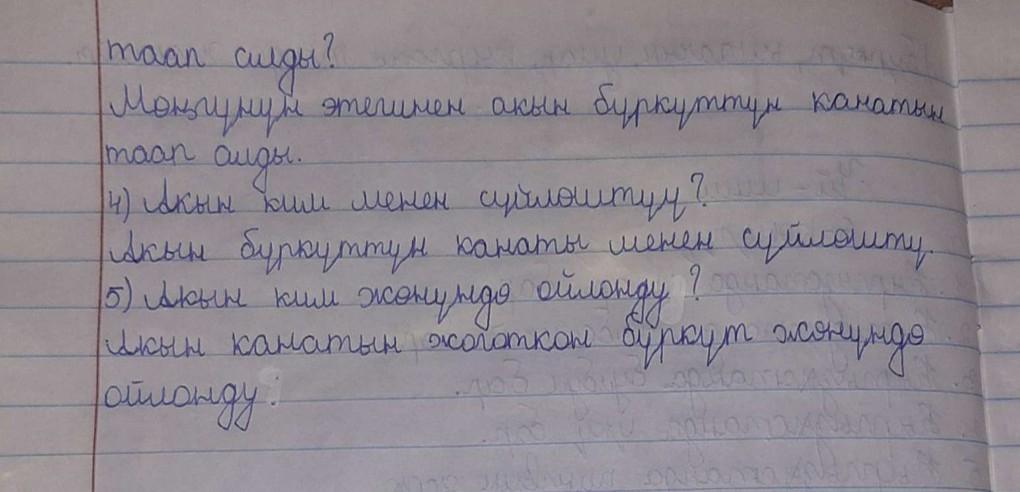 таап алды?
Мөңгүнүн этегинен акын бүркүттүн канатын
таап алды.
4) Акын ким менен сүйлөштүү?
Акын бүркүттүн канаты менен сүйлөштү.
5) Акын ким жөнүндө ойлонду?
Акын канатын жоготкон бүркүт жөнүндө
ойлонду.